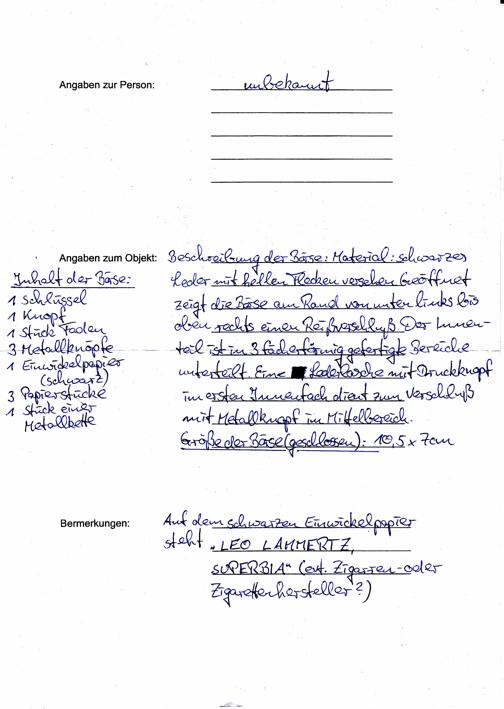 Angaben zur Person: unbekannt
Angaben zum Objekt: Beschreibung der Börse: Material: schwarzes
Leder mit hellen Flecken versehen Geöffnet
zeigt die Börse am Rand von unter links bis
oben rechts einen Reißverschluß. Der Innen-
teil ist in 3 fächerförmig gefertigte Bereiche
unterteilt. Eine Ledertasche mit Druckknopf
im ersten Innenfach dient zum Verschluß
mit Metallknopf im Mittelbereich.
Größe der Börse (geschlossen): 10,5 x 7cm
Inhalt der Börse:
1 Schlüssel
1 Knopf
1 Stück Faden
3 Metallknöpfe
1 Einwickelpapier
(schwarz)
3 Papierstücke
1 Stück einer
Metallkette
Bermerkungen: Auf dem schwarzen Einwickelpapier
steht "LEO LAMMERTZ,
SUPERBIA" (evt. Zigarren- oder
Zigarettenhersteller?)